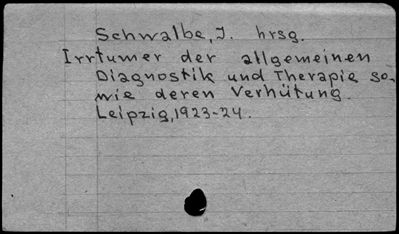 Schwalbe, J. hrsg.
Irrtumer der allgemeinen
Diagnostik und Therapie so-
wie deren Verhütung.
Leipzig, 1923-24.